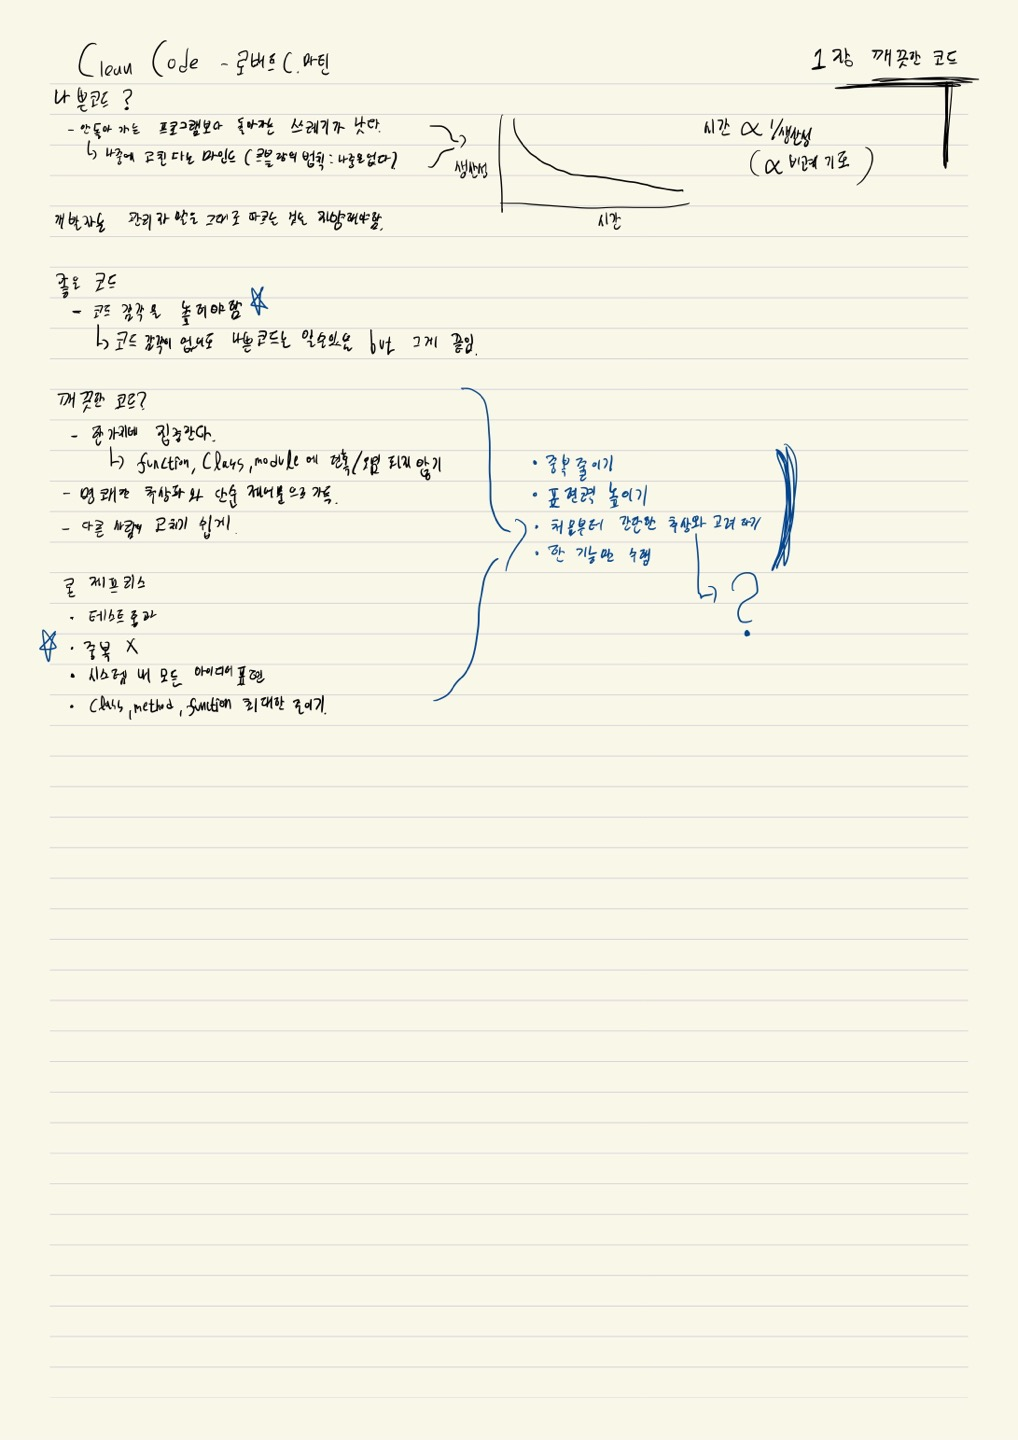 Clean Code - 로버트 C. 마틴
1장 깨끗한 코드
나쁜코드?
- 안돌아 가는 프로그램보다 돌아가는 쓰레기가 낫다.
↳ 나중에 고친다는 마인드 (르블랑의 법칙 : 나중은없다)
생산성
시간
시간 ∝ 1/생산성
(∝ 비례 기호)
개발자는 관리자 말을 그대로 따르는 것도 지양해야함.
좋은 코드
- 코드 감각을 높여야함 ☆
↳ 코드 감각이 없어도 나쁜코드는 알수있음 but 그게 끝임.
깨끗한 코드?
- 한가지에 집중한다.
↳ function, Class, module에 현혹/오염 되지 않기
- 명쾌한 추상화와 단순 제어문으로 가득.
- 다른 사람이 고치기 쉽게.
론 제프리스
· 테스트통과
☆ · 중복 X
· 시스템 내 모든 아이디어 표현
· Class, method, function 최대한 줄이기.
· 중복 줄이기
· 표현력 높이기
· 처음부터 간단한 추상화 고려하기
· 한 기능만 수행
↳ ?